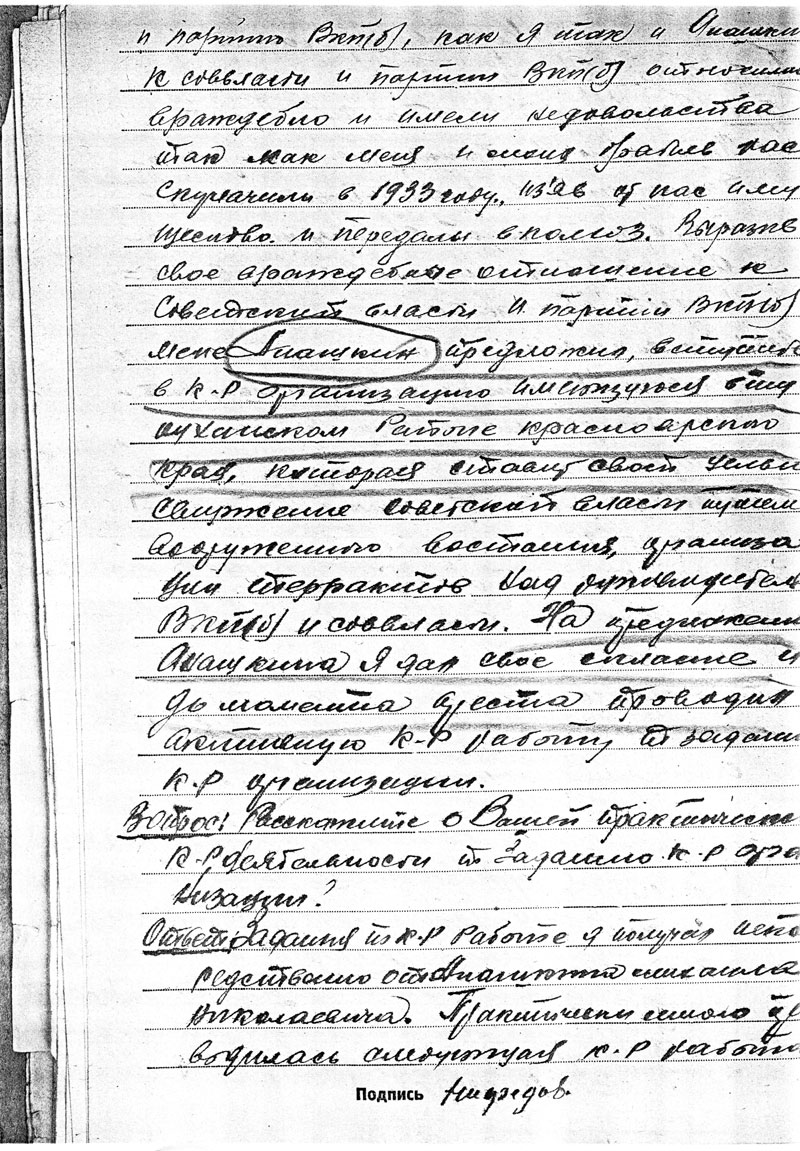 и партию ВКП(б), как я так и Анашки
к соввласти и партии ВКП(б) относились
враждебно и имели недовольства
так как меня и моих братьев рас
кулачили в 1933 году, из'яв от нас иму
щество и передали в колхоз. Выразив
свое враждебное отношение к
Советской власти и партии ВКП(б)
мене Анашкин предложил, вступить
в к-р организацию имеющуюся в
районе красноярского
края, которая ставит своей целью
свержение советской власти путем
вооруженного востания, организа
ции террактов над руководител
ВКП(б) и соввласти. На предложени
Анашкина я дал свое согласие и
до момента ареста проводил
активную к-р работу по задани
к-р организации.
Вопрос: Расскажите о Вашей практическо
к-р деятельности по заданию к-р орга
низации?
Ответ: Задания по к-р работе я получал непо
редственно от Анашкина михаила
николаевича. Практически мною пр
водилась следующая к-р работа
Подпись